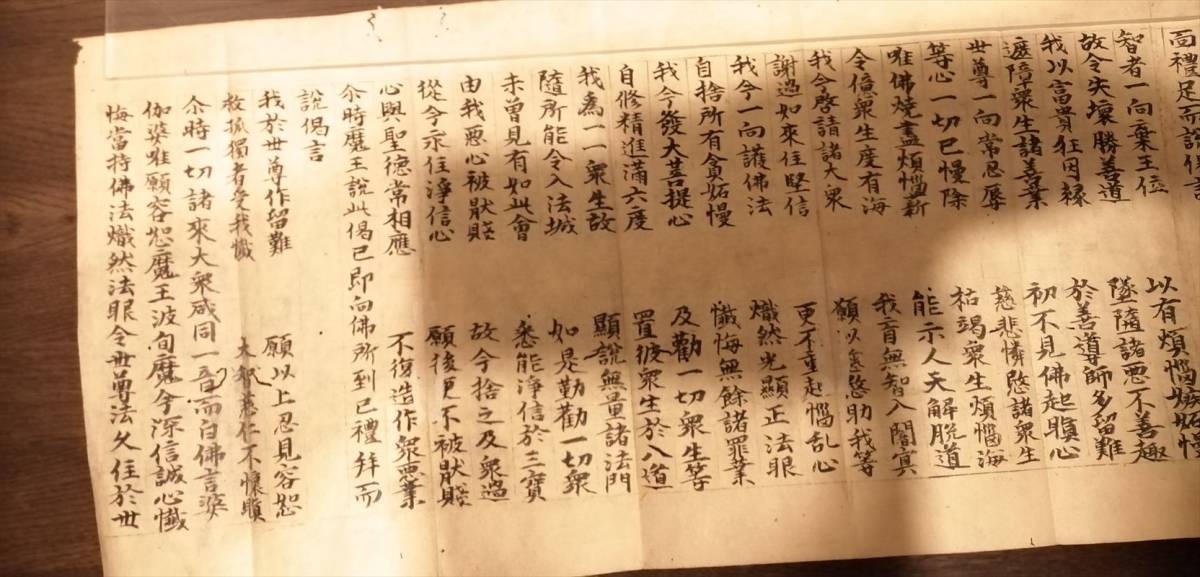 面禮足而說偈言
智者一向棄王位　以有煩惱嫉妬慢
故令失壞勝善道　墜墮諸惡不善趣
我以富貴狂因緣　於善導師多留難
遮障眾生諸善業　初不見佛起瞋心
世尊一向常忍辱　慈悲憐愍諸眾生
等心一切已慢除　枯竭眾生煩惱海
唯佛燒盡煩惱薪　能示人天解脫道
令億眾生度有海　我盲無智入闇冥
我今啓請諸大眾　願以慈愍助我等
謝過如來住堅信　更不重起惱乱心
我今一向護佛法　熾然光顯正法眼
自捨所有貪妬慢　懺悔無餘諸罪業
我今發大菩提心　及勸一切眾生等
自修精進滿六度　置彼眾生於八道
我為一一眾生故　顯說無量諸法門
隨所能令入法城　如是勤勸一切眾
未曾見有如此會　悉能淨信於三寶
由我惡心被猒賤　故今捨之及眾過
從今永住淨信心　願後更不被猒賤
心與聖德常相應　不復造作眾惡業
尒時魔王說此偈已即向佛所到已禮拜而
說偈言
我於世尊作留難　願以上忍見容恕
救孤獨者受我懺　大慈仁不懷瞋
尒時一切諸來大眾咸同一音而白佛言婆
伽婆唯願容恕魔王波旬魔今深信誠心懺
悔當持佛法熾然法眼令世尊法久住於世